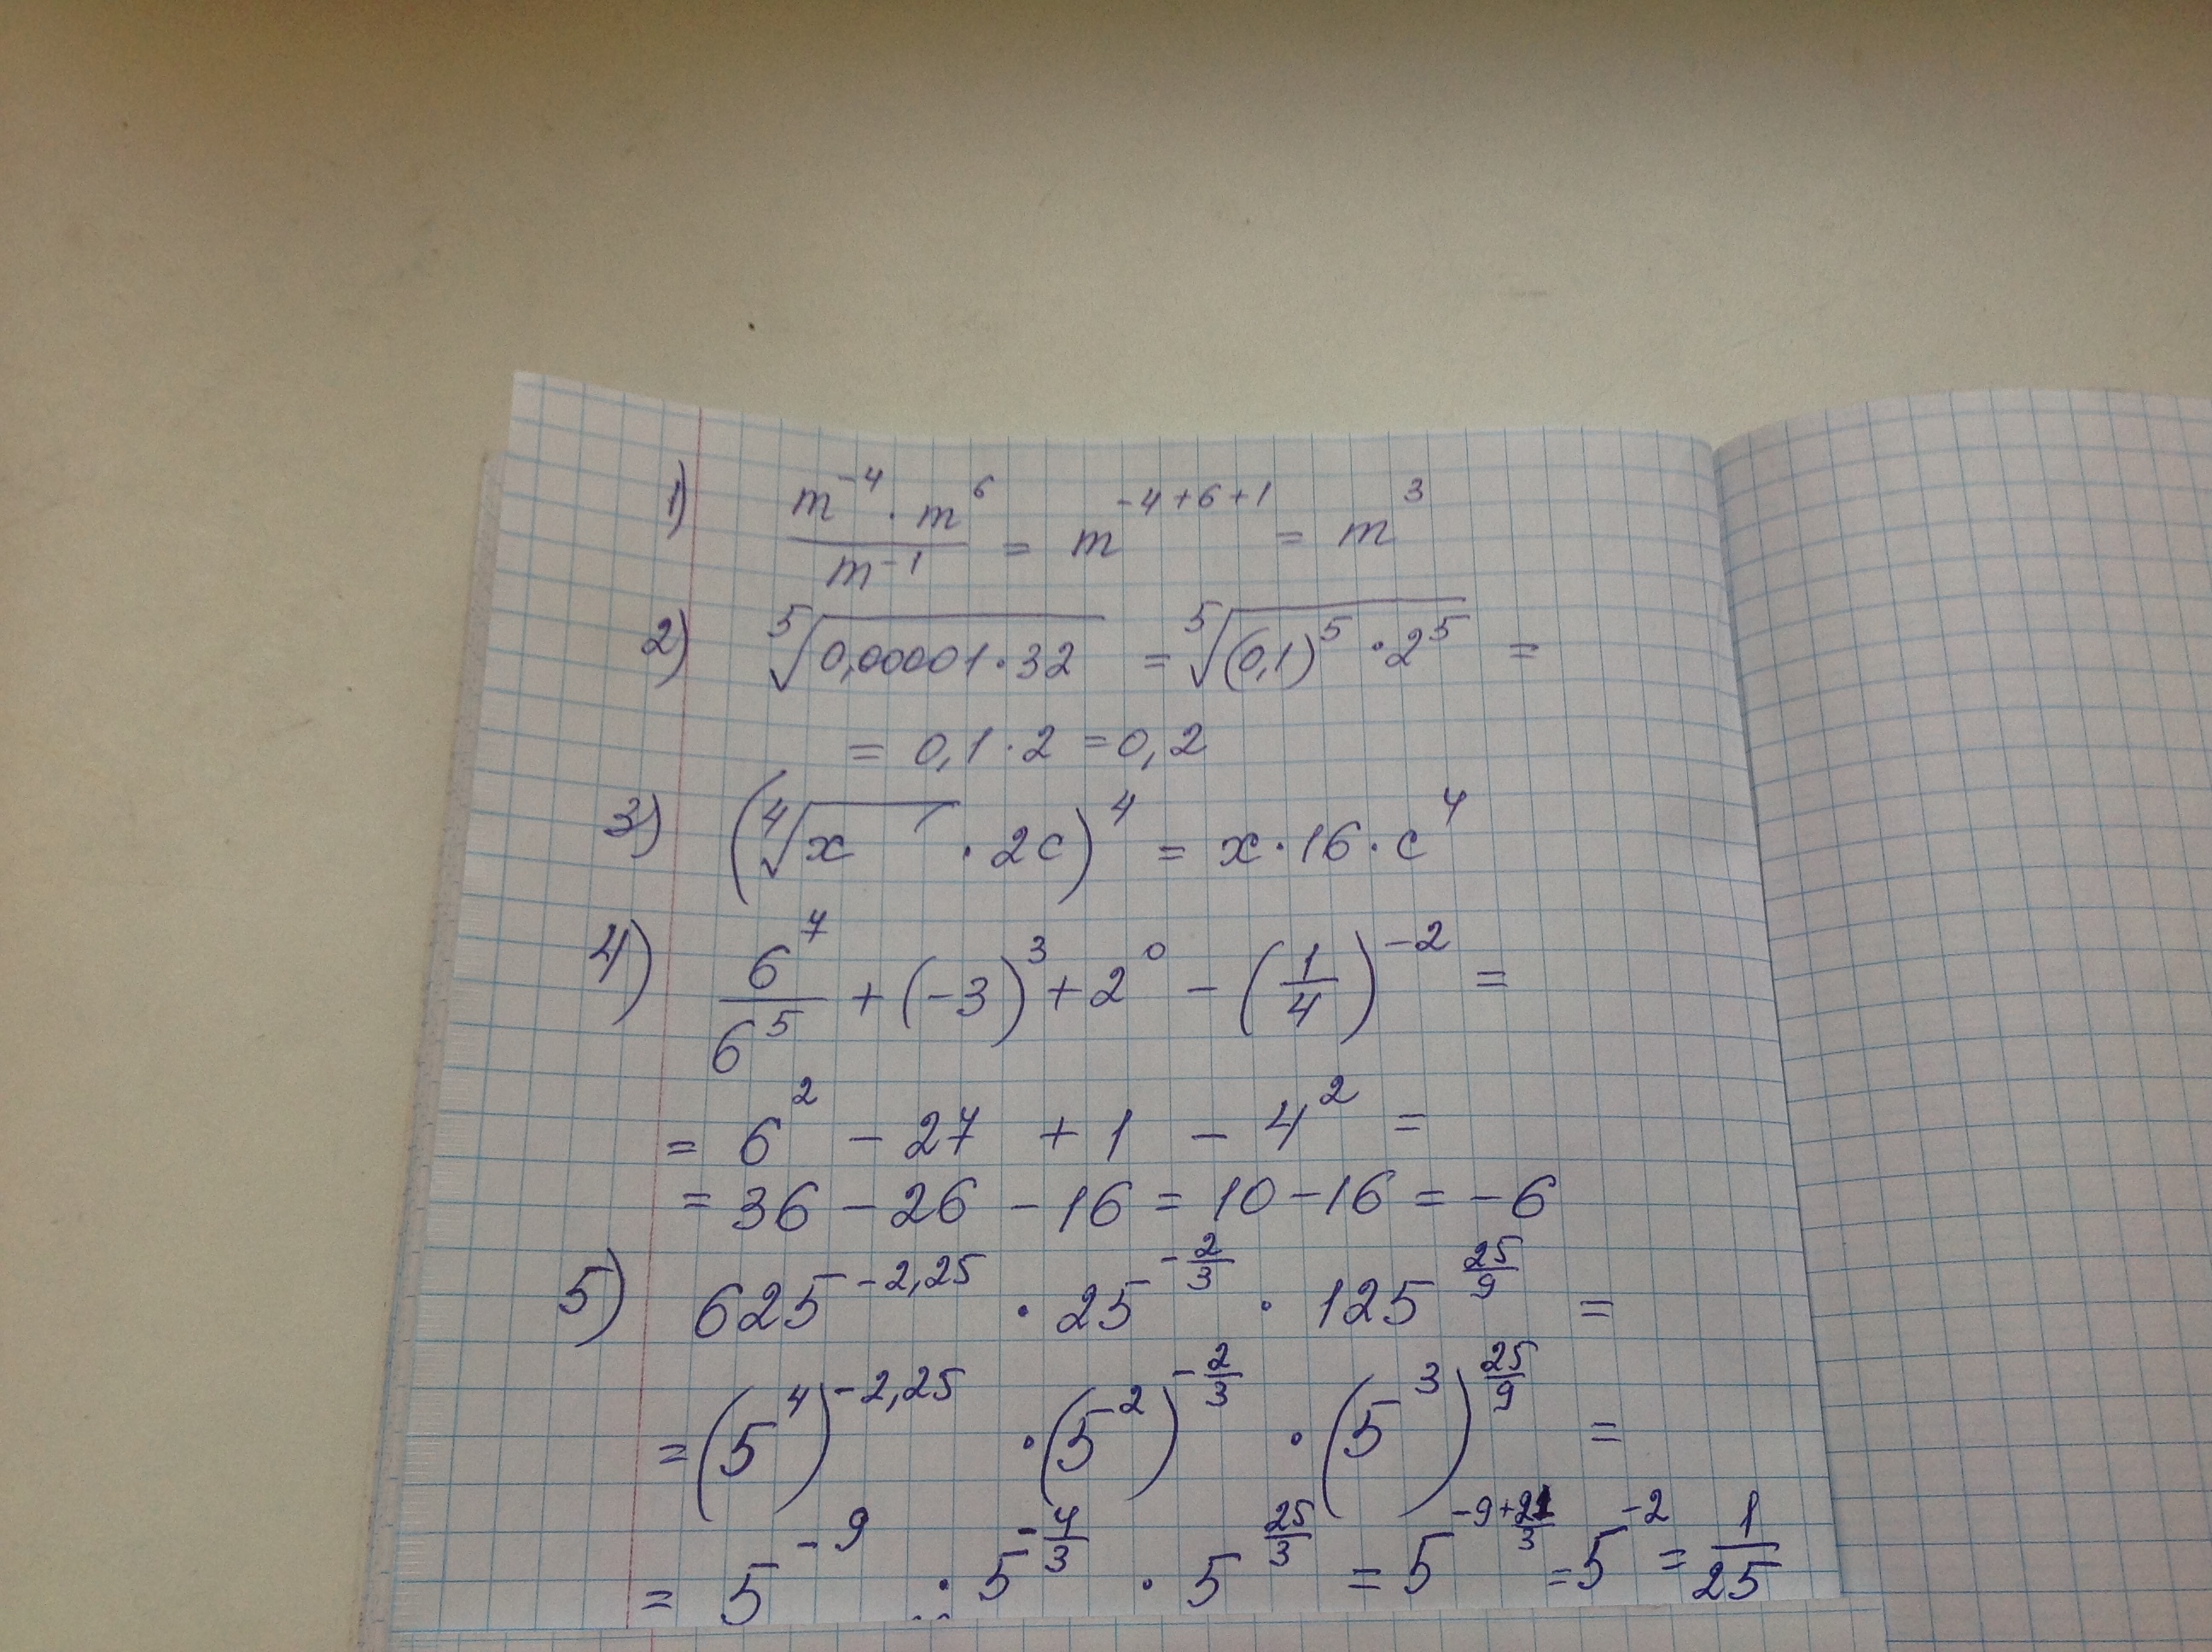 1) m⁻⁴ · m⁶ / m⁻¹ = m^(-4+6+1) = m³
2) ⁵√(0,00001 · 32) = ⁵√((0,1)⁵ · 2⁵) =
= 0,1 · 2 = 0,2
3) (⁴√x · 2c)⁴ = x · 16 · c⁴
4) 6⁷/6⁵ + (-3)³ + 2⁰ - (1/4)⁻² =
= 6² - 27 + 1 - 4² =
= 36 - 26 - 16 = 10 - 16 = -6
5) 625^(-2,25) · 25^(-2/3) · 125^(25/9) =
= (5⁴)^(-2,25) · (5²)^(-2/3) · (5³)^(25/9) =
= 5⁻⁹ · 5^(-4/3) · 5^(25/3) = 5^(-9+21/3) = 5⁻² = 1/25